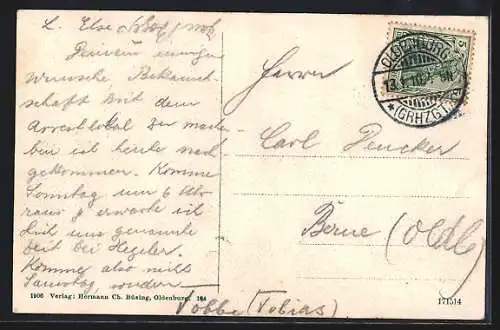 L. Else
Deinem ewigen
Wunsche, Bekannt-
schaft mit dem
Arrestlokal zu machen
bin ich heute nach
gekommen. Komme
Sonntag um 6 Uhr
raus & erwarte ich
Dich um genannte
Zeit bei Hegeler.
Komme also nicht
Samstag, sondern
Tobbe (Tobias)
Herrn
Carl Deucker
Berne (Oldb.)
OLDENBURG
13
*(GRHZGT.)
1906 Verlag: Hermann Ch. Büsing, Oldenburg. 164
171514